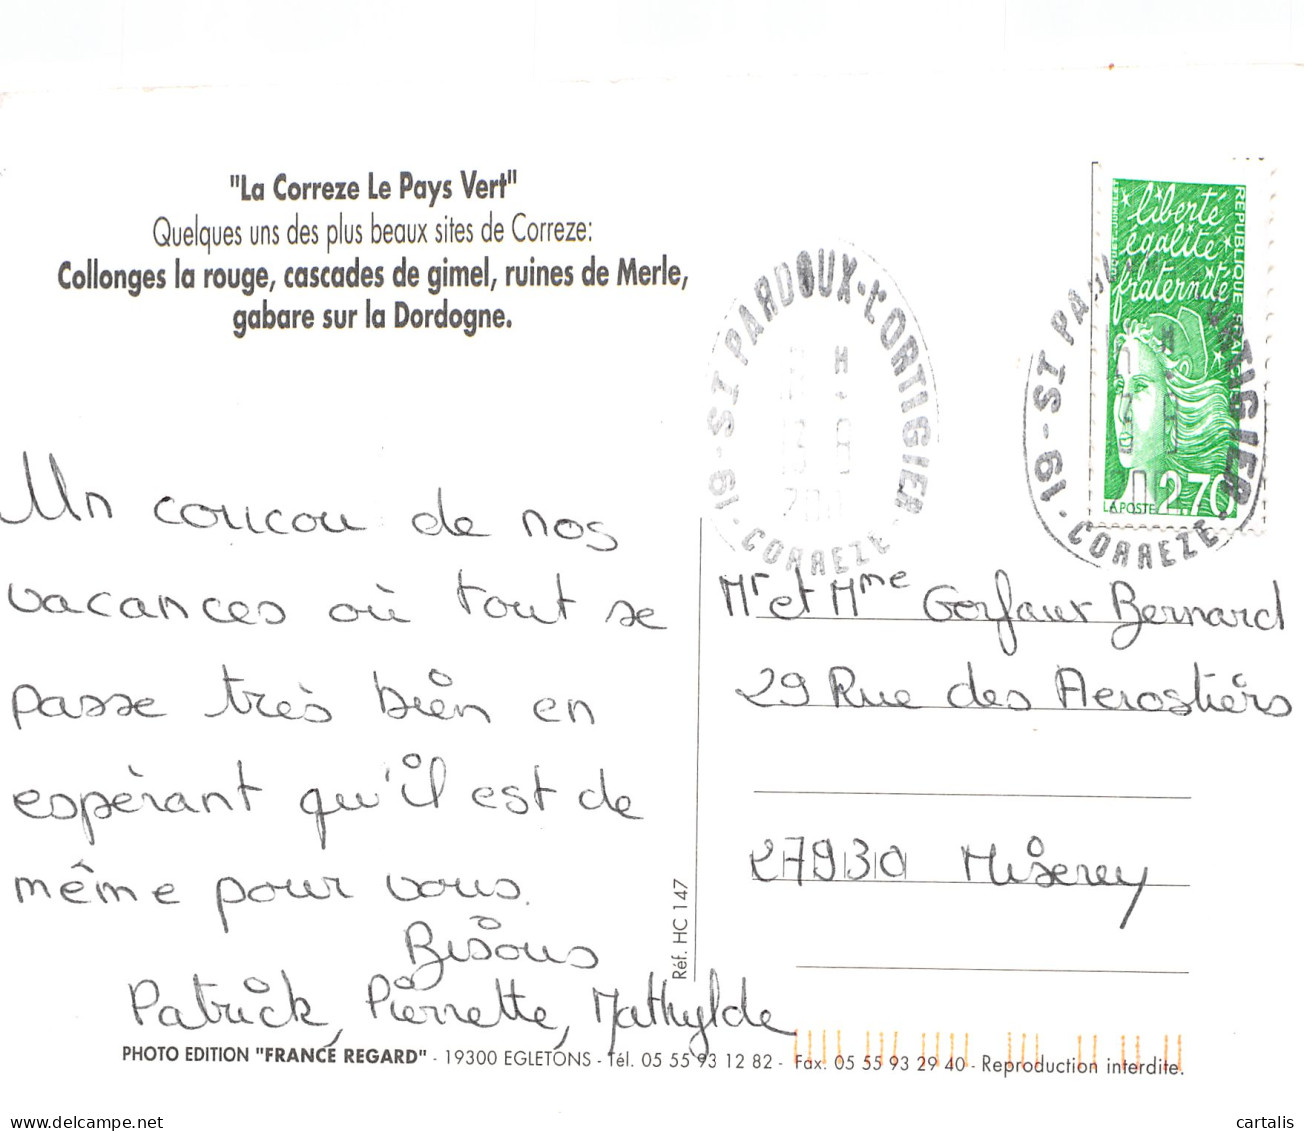 "La Correze Le Pays Vert"
Quelques uns des plus beaux sites de Correze:
Collonges la rouge, cascades de gimel, ruines de Merle,
gabare sur la Dordogne.
liberté
égalité
fraternité
RÉPUBLIQUE FRANÇAISE
LA POSTE 2,70
19 - ST PARDOUX-L'ORTIGIER
- CORREZE -
19 - ST PARDOUX-L'ORTIGIER
- CORREZE -
Un coucou de nos
vacances où tout se
passe très bien en
espèrant qu'il est de
même pour vous.
Bisous
Patrick, Pierrette, Mathylde
Mr et Mme Gorfaux Bernard
29 Rue des Aerostiers
27930 Miserey
Réf. HC 147
PHOTO EDITION "FRANCE REGARD" - 19300 EGLETONS - Tél. 05 55 93 12 82 - Fax. 05 55 93 29 40 - Reproduction interdite.
delcampe.net
cartalis